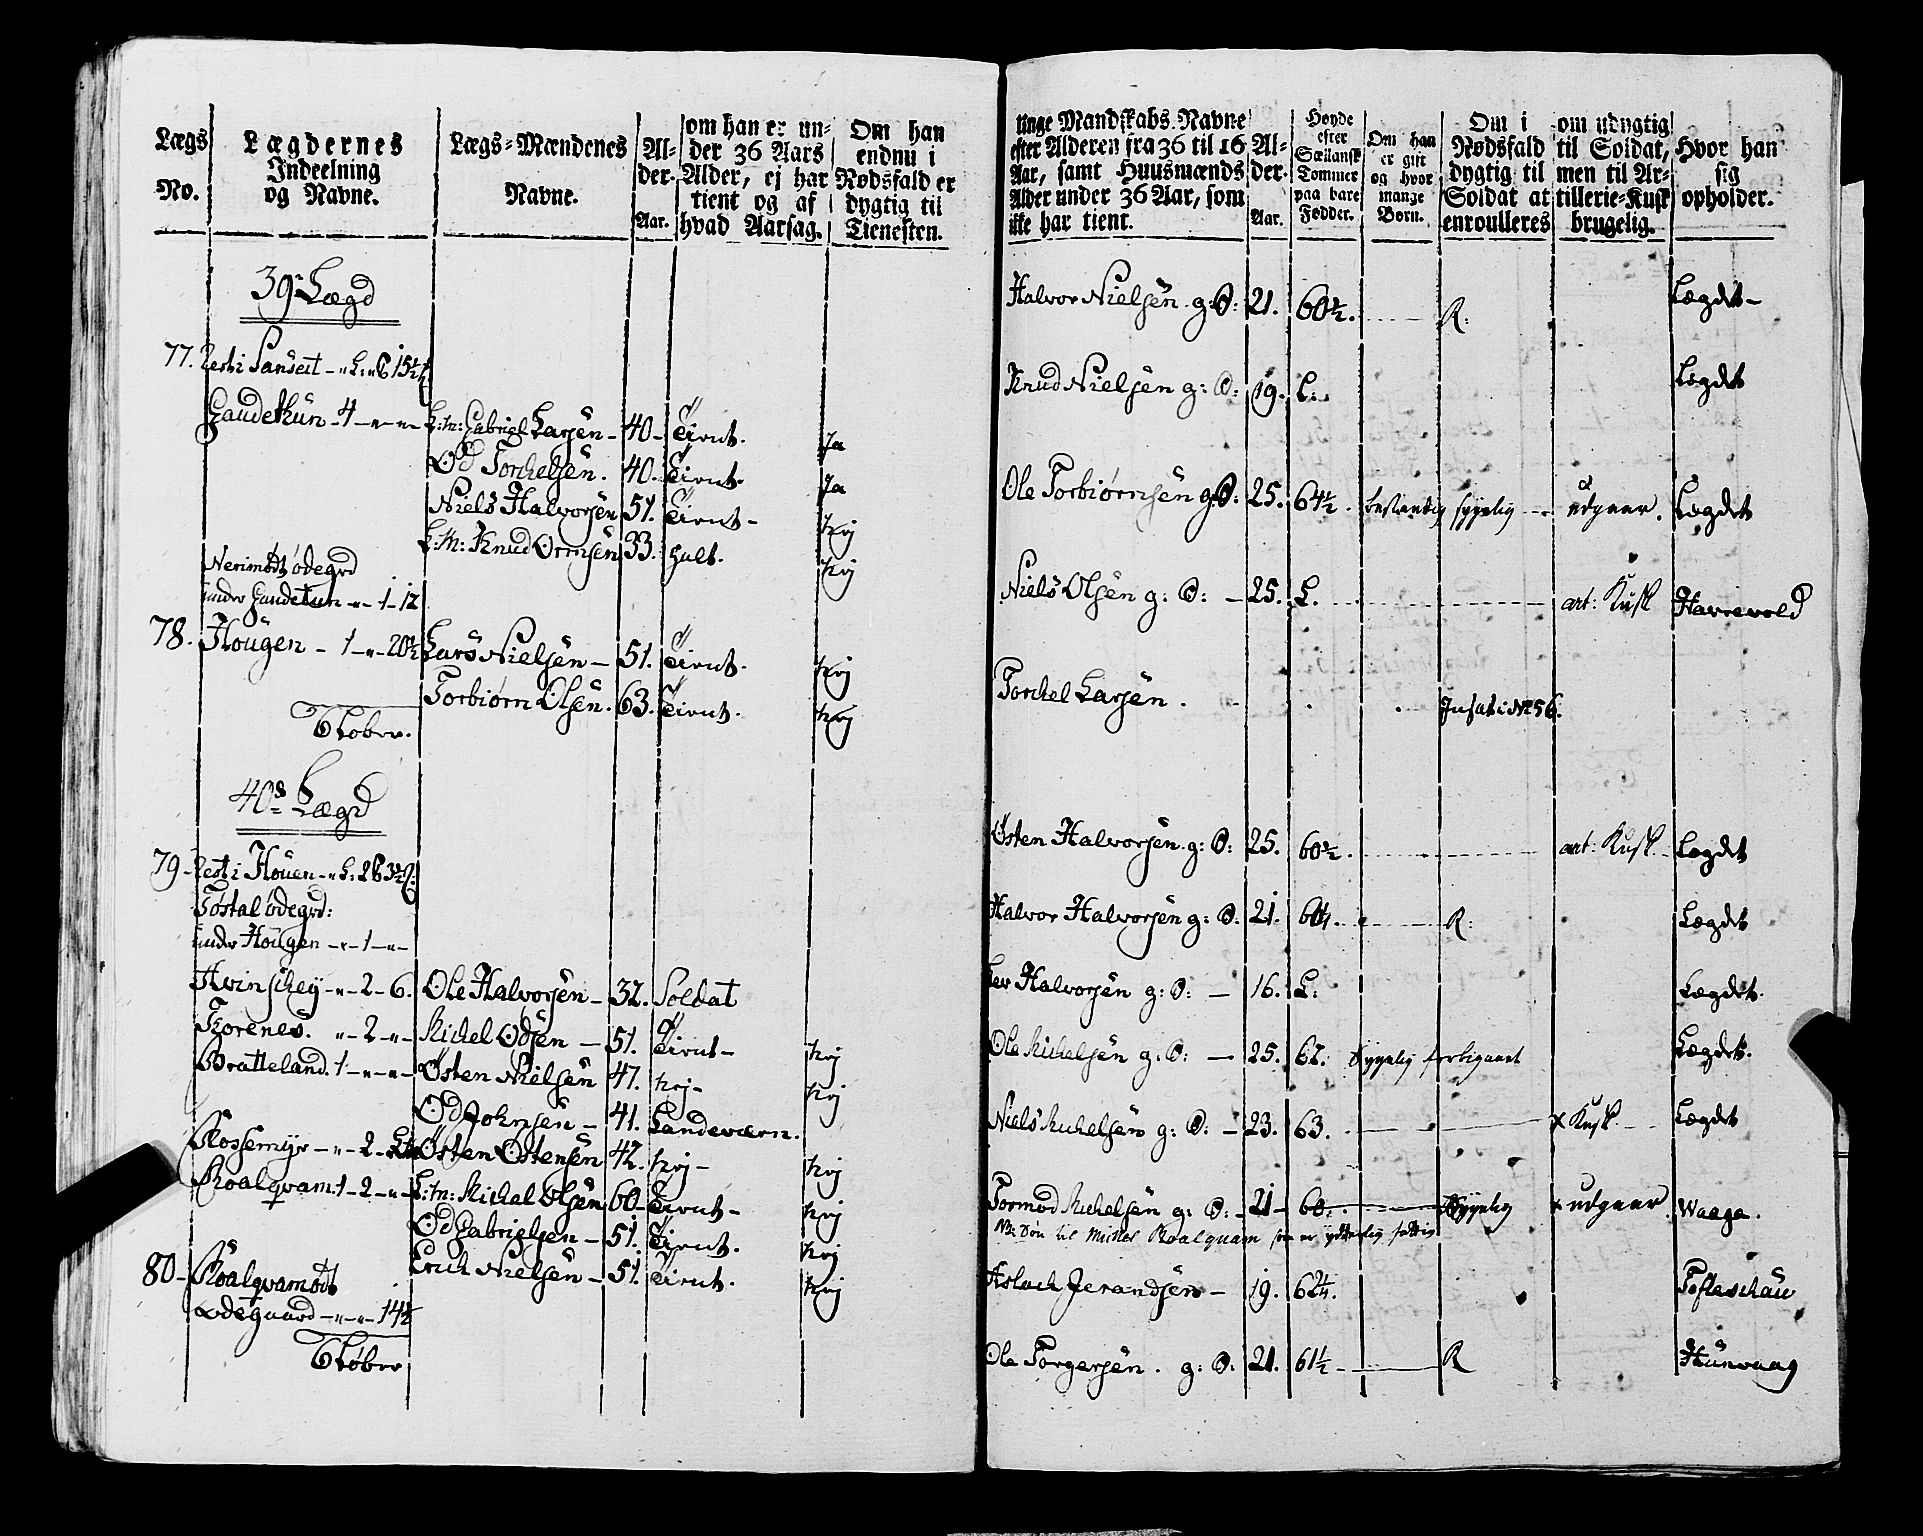 Lægs No.
Lægdernes Indeelning og Navne.
Lægs-Mændenes Navne.
Alder. Aar.
om han er under 36 Aars Alder, ej har tient og af hvad Aarsag.
Om han endnu i Nødsfald er dygtig til Tienesten.
39te Lægd
77. Rest i Sanseit
Gaudetun 4 L:m: Gabriel Larsen 40 Tient. Ja
Od Torchelsen. 40. Tient. Ja
Niels Halvorsen 51. Tient Nej
L:M: Knud Ormsen 33. halt. Nej
ødegrd
under Gaudetun 1 12
78. Hougen 1 20½ Lars Nielsen 51. Tient. Nej
Torbiørn Olsen. 63. Tient. Nej
40de Lægd
79 Rest i Houen
ødegrd:
under Hougen 1
Hvinshey 2 6. Ole Halvorsen 32. Soldat
Korenes. 2 Michel Odsen 51. Tient Nej
Bratteland. 1 Østen Nielsen 47. Nej Nej
Od Johnsen 41. Landeværn.
Kossemyr 2 Østen Østensen 42. Nej Nej
Roalqvam. 1 2 L:m: Michel Olsen 60 Tient Nej
Od Gabrielsen 51. Tient. Nej
Erich Nielsen 51. Tient. Nej
80 Roalqvamødt
Ødegaard 14½
unge Mandskabs Navne efter Alderen fra 36 til 16 Aar, samt Huusmænds Alder under 36 Aar, som ikke har tient.
Alder. Aar.
Høyde efter Sællansk Tommer paa bare Fødder.
Om han er gift og hvor mange Børn.
Om i Nødsfald dygtig til Soldat at enroulleres
om udygtig til Soldat, men til Artillerie-Kusk brugelig.
Hvor han sig opholder.
Halvor Nielsen g: S: 21. 60½. R: Lægdet
Knud Nielsen g: S: 19. L: Lægdet
Ole Torbiørnsen g: S: 25. 64½. bestandig sygelig udgaar. Lægdet
Niels Olsen g: S: 25. L. art: Kusk Havrevold
Torchel Larsen. Insat i No 56.
Østen Halvorsen. g: S: 25. 60½. art: Kusk Lægdet
Halvor Halvorsen g: S: 21. R: Lægdet
Halvorsen g: S: 16. L: Lægdet.
Ole Michelsen g: S: 25. 62. Sygelig forbigaaet Lægdet.
Niels Michelsen g: S: 23. 63. x Kusk. Lægdet
Tormod Michelsen g: S: 21 60. Sygelig x udgaar. Waage.
NB: Søn til Michel Roalquam som er ytterlig fattig
Aslach Jerandsen 19. 62¼.
Ole Torgersen. g: S: 21. 61½ R Hunvaag